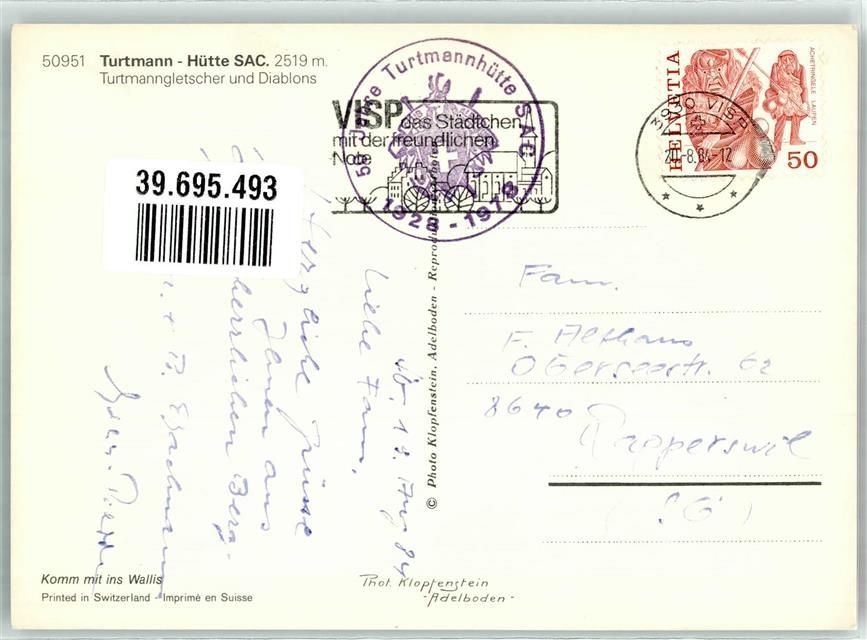 50951 Turtmann - Hütte SAC. 2519 m.
Turtmanngletscher und Diablons
50 Jahre Turtmannhütte SAC
1928 - 1978
VISP das Städtchen
mit der freundlichen
Note
HELVETIA
ACHETRINGELE LAUPEN
50
3930 VISP
-8.84-12
39.695.493
19. Aug 84
Liebe Fam.
Herzliche Grüsse
Ihnen aus
herrlichen Berg-
Fam.
F. Althaus
Oberseestr. 62
8640
Rapperswil
(SG)
© Photo Klopfenstein, Adelboden -
Komm mit ins Wallis
Printed in Switzerland - Imprimé en Suisse
Phot. Klopfenstein
- Adelboden -